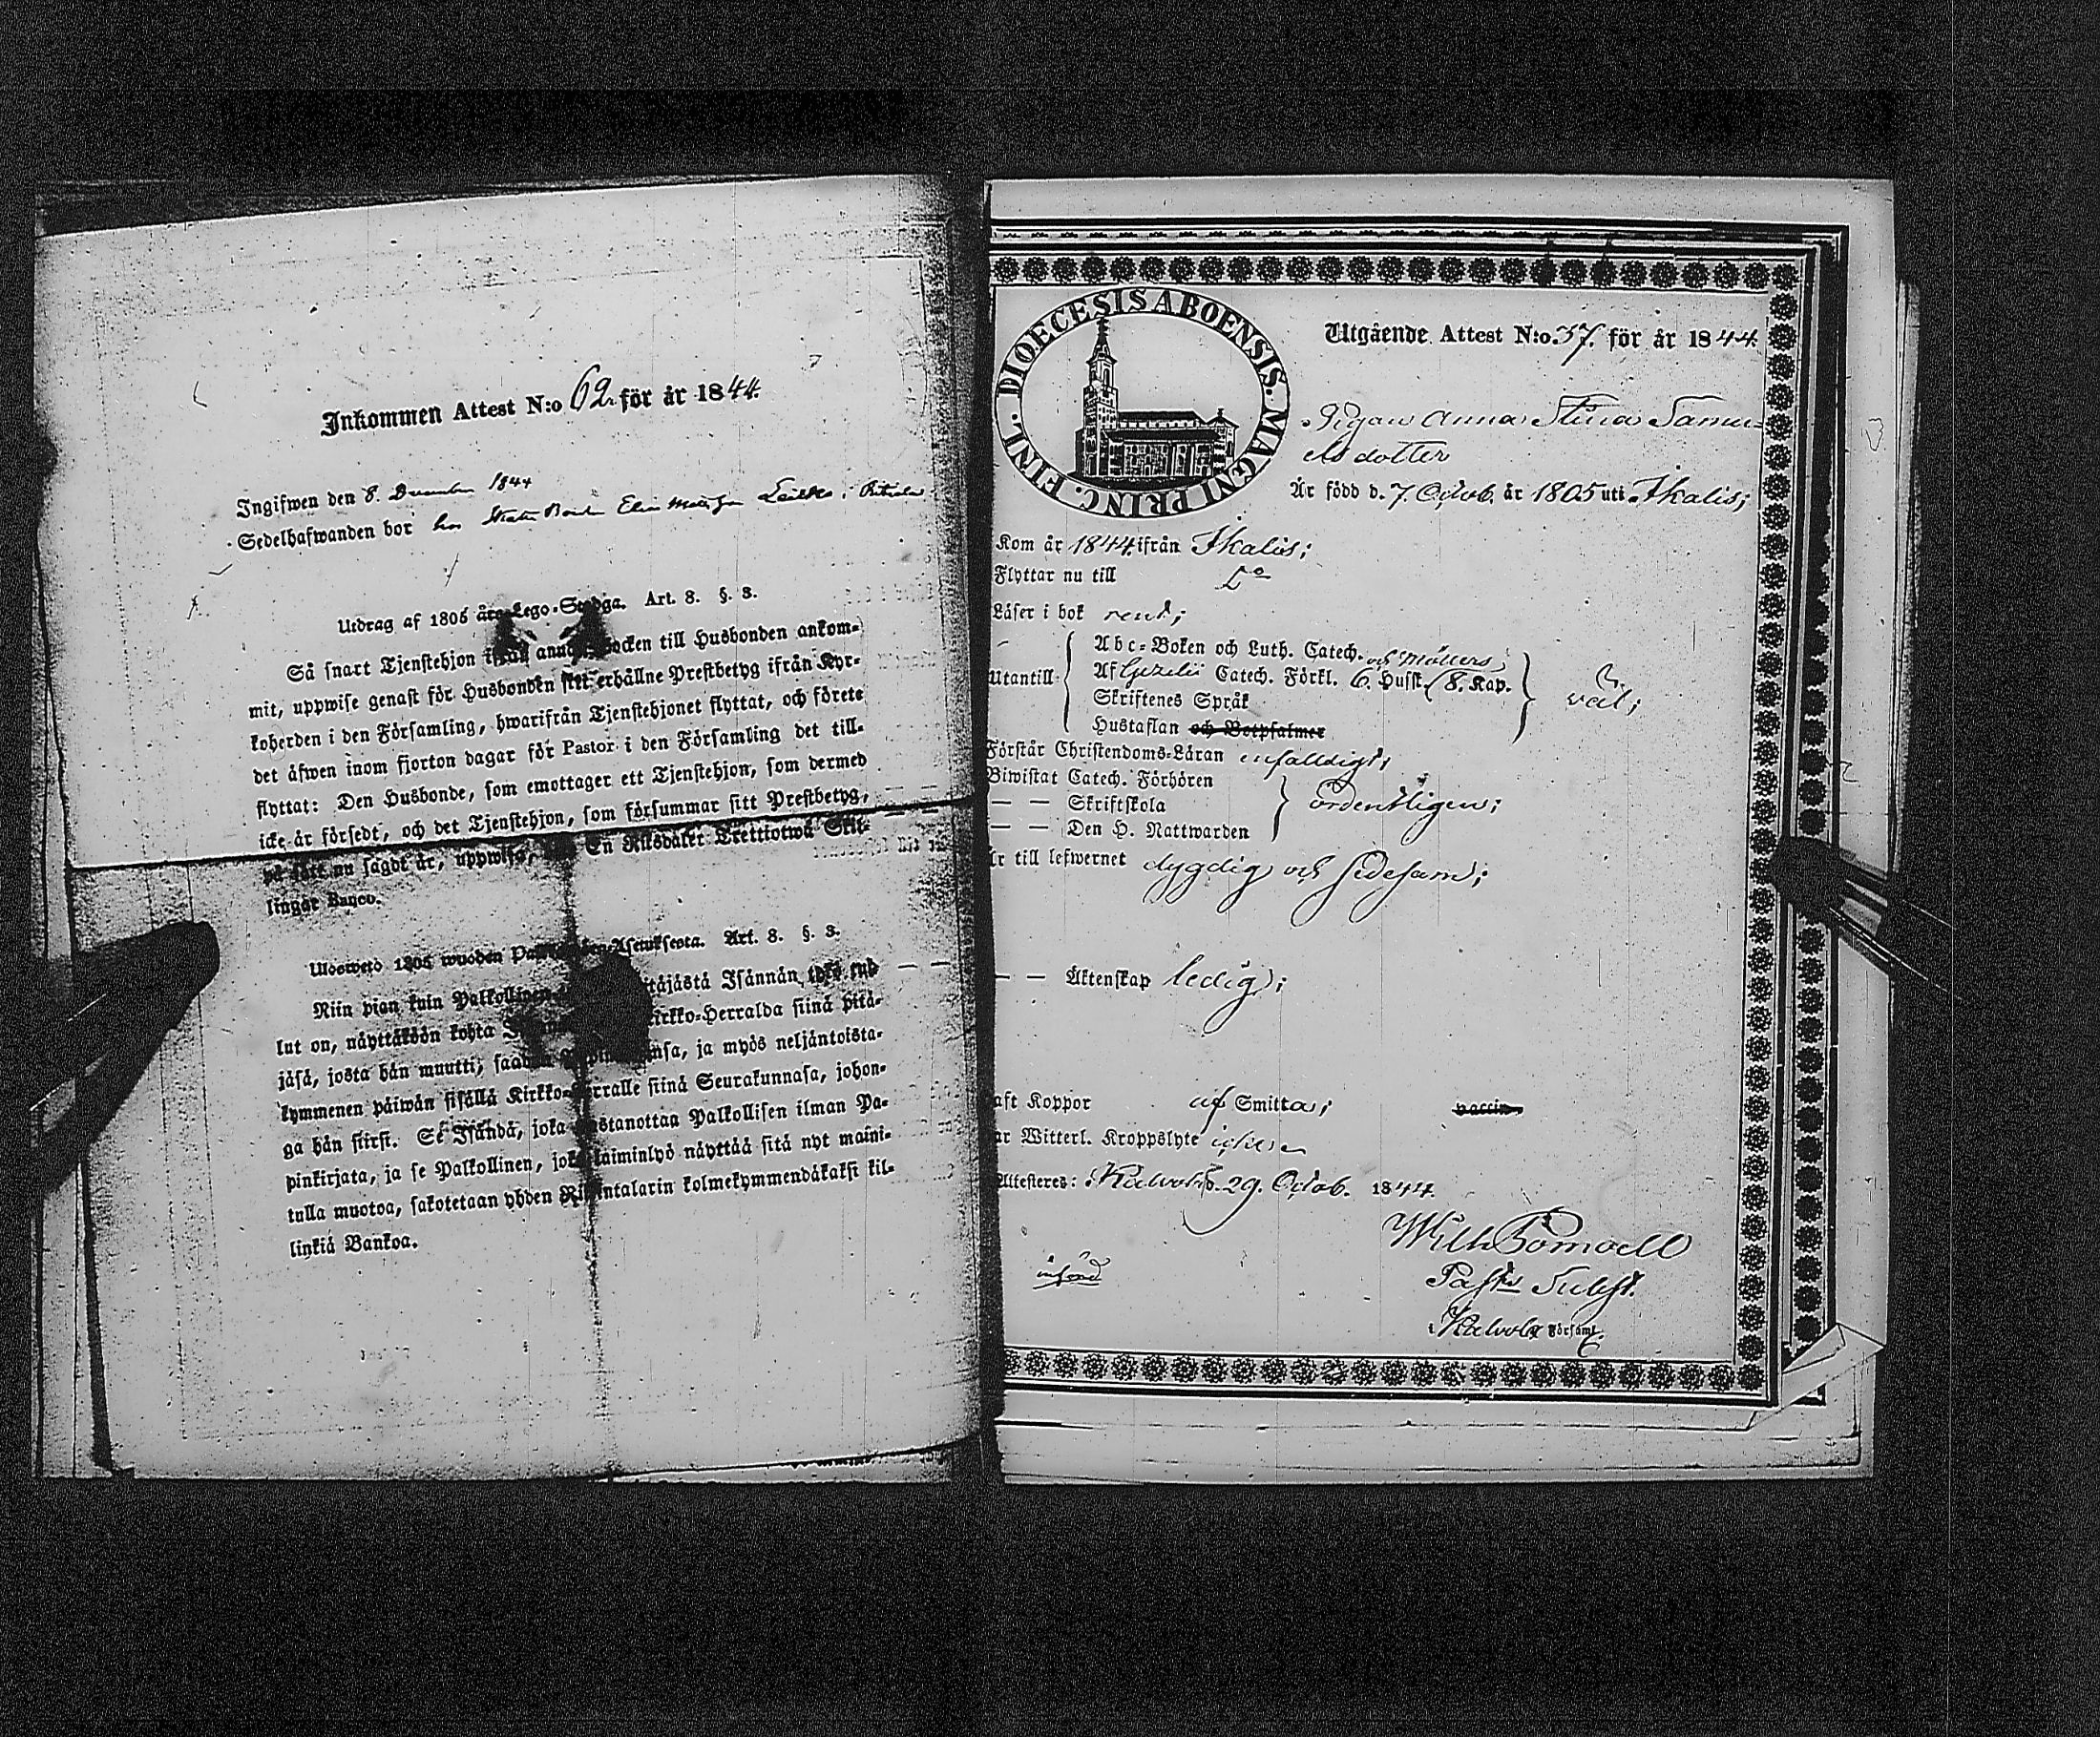 Inkommen Attest N:o 62 för år 1844.
Ingifwen den 8. December 1844
Sedelhafwanden bor hos Skatte Bond. Elias Matts Son i
Utdrag af 1805 års Lego-Stadga. Art. 8. §. 3.
Så snart Tjenstehjon ifrån annan Socken till Husbonden ankom-
mit, uppwise genast för Husbonden sitt erhållne Prestbetyg ifrån Kyr-
koherden i den Församling, hwarifrån Tjenstehjonet flyttat, och förete
det äfwen inom fjorton dagar för Pastor i den Församling det till-
flyttat: Den Husbonde, som emottager ett Tjenstehjon, som dermed
icke är försedt, och det Tjenstehjon, som försummar sitt Prestbetyg,
på sätt nu sagdt är, uppwisa, En Riksdaler Trettiotwå Skil-
lingar Banco.
Uloswetd 1805 wuoden Asetuksesta. Art. 8. §. 3.
Niin pian kuin Palkollinen pitäjästä Isännän tykö tul-
lut on, näyttäköön kohta Kirkko-Herralda siinä pitä-
jäsä, josta hän muutti, saadun insa, ja myös neljäntoista-
kymmenen päiwän sisällä Kirkko-Herralle siinä Seurakunnasa, johon-
ga hän siirsi. Se Isändä, joka wastanottaa Palkollisen ilman Pa-
pinkirjata, ja se Palkollinen, joka laiminlyö näyttää sitä nyt maini-
tulla muotoa, sakotetaan yhden Riksintalarin kolmekymmendäkaksi kil-
linkiä Bankoa.
FINL. DIOECESIS ABOENSIS. MAGNI PRINC.
Utgående Attest N:o 37. för år 1844.
Pigan Anna Stina Samu-
elsdotter
Är född d. 7. Octob. år 1805 uti Ikalis;
Kom år 1844 ifrån Ikalis;
Flyttar nu till Do
Läser i bok rent;
Utantill
Abc-Boken och Luth. Catech. och Möllers;
Af Gezelii Catech. Förkl. 6. Husst. (8. Kap.
Skriftenes Språk
Hustaflan och Botpsalmer
väl;
Förstår Christendoms-Läran enfaldigt;
Biwistat Catech. Förhören
— — Skriftskola
— — Den H. Nattwarden
ordentligen;
är till lefwernet dygdig och sedesam;
— — Äktenskap ledig;
aft Koppor af Smitta; vaccin.
ar Witterl. Kroppslyte icke
Attesteres: i Kalvola d. 29. Octob. 1844.
Past. Subst.
i Kalvola Församl.
införd